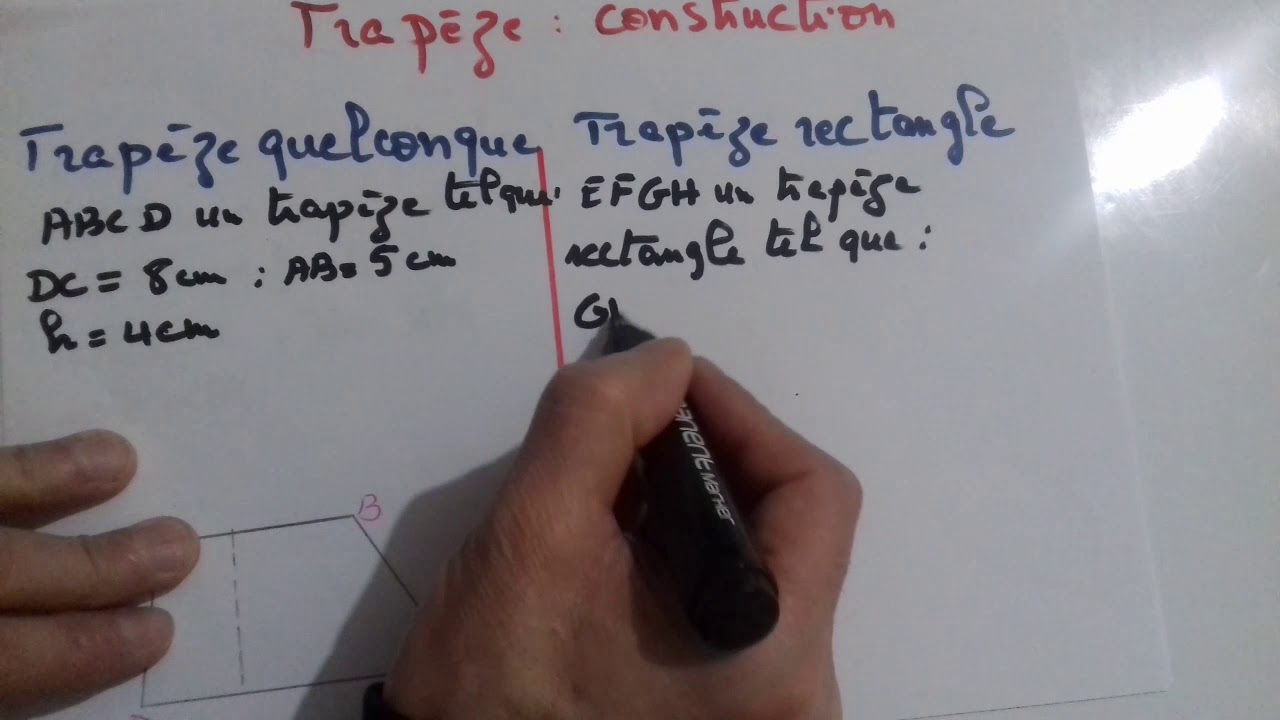 Trapèze : construction
Trapèze quelconque
ABCD un trapèze tel que:
DC = 8cm ; AB = 5cm
h = 4cm
B
Trapèze rectangle
EFGH un trapèze
rectangle tel que :
GH
permanent marker